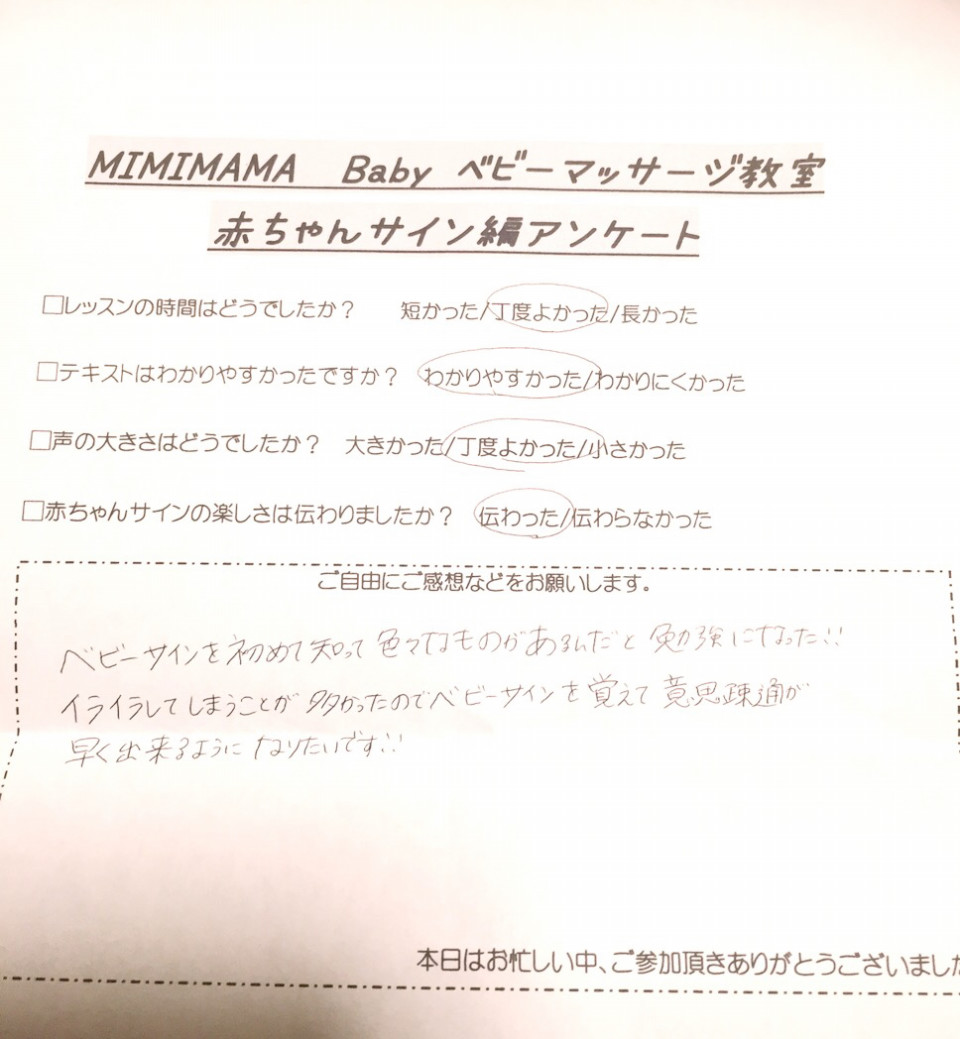 MIMIMAMA Baby ベビーマッサージ教室
赤ちゃんサイン編アンケート
□レッスンの時間はどうでしたか? 短かった/丁度よかった/長かった
□テキストはわかりやすかったですか? わかりやすかった/わかりにくかった
□声の大きさはどうでしたか? 大きかった/丁度よかった/小さかった
□赤ちゃんサインの楽しさは伝わりましたか? 伝わった/伝わらなかった
ご自由にご感想などをお願いします。
ベビーサインを初めて知って色々なものがあるんだと勉強になった!!
イライラしてしまうことが多かったのでベビーサインを覚えて意思疎通が
早く出来るようになりたいです!!
本日はお忙しい中、ご参加頂きありがとうございました